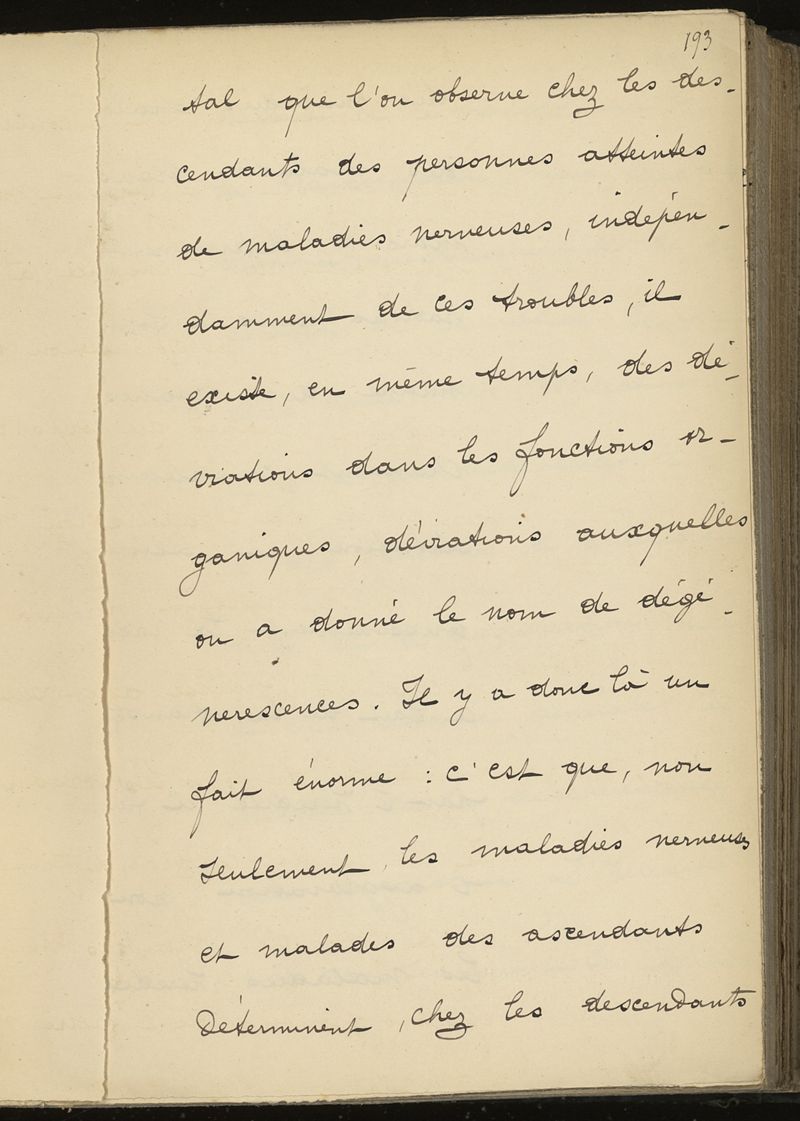 193
tal que l'on observe chez les des-
cendants des personnes atteintes
de maladies nerveuses, indépen-
damment de ces troubles, il
existe, en même temps, des dé-
viations dans les fonctions or-
ganiques, déviations auxquelles
on a donné le nom de dégé-
nerescences. Il y a donc là un
fait énorme : c'est que, non
seulement, les maladies nerveuses
et malades des ascendants
déterminent, chez les descendants